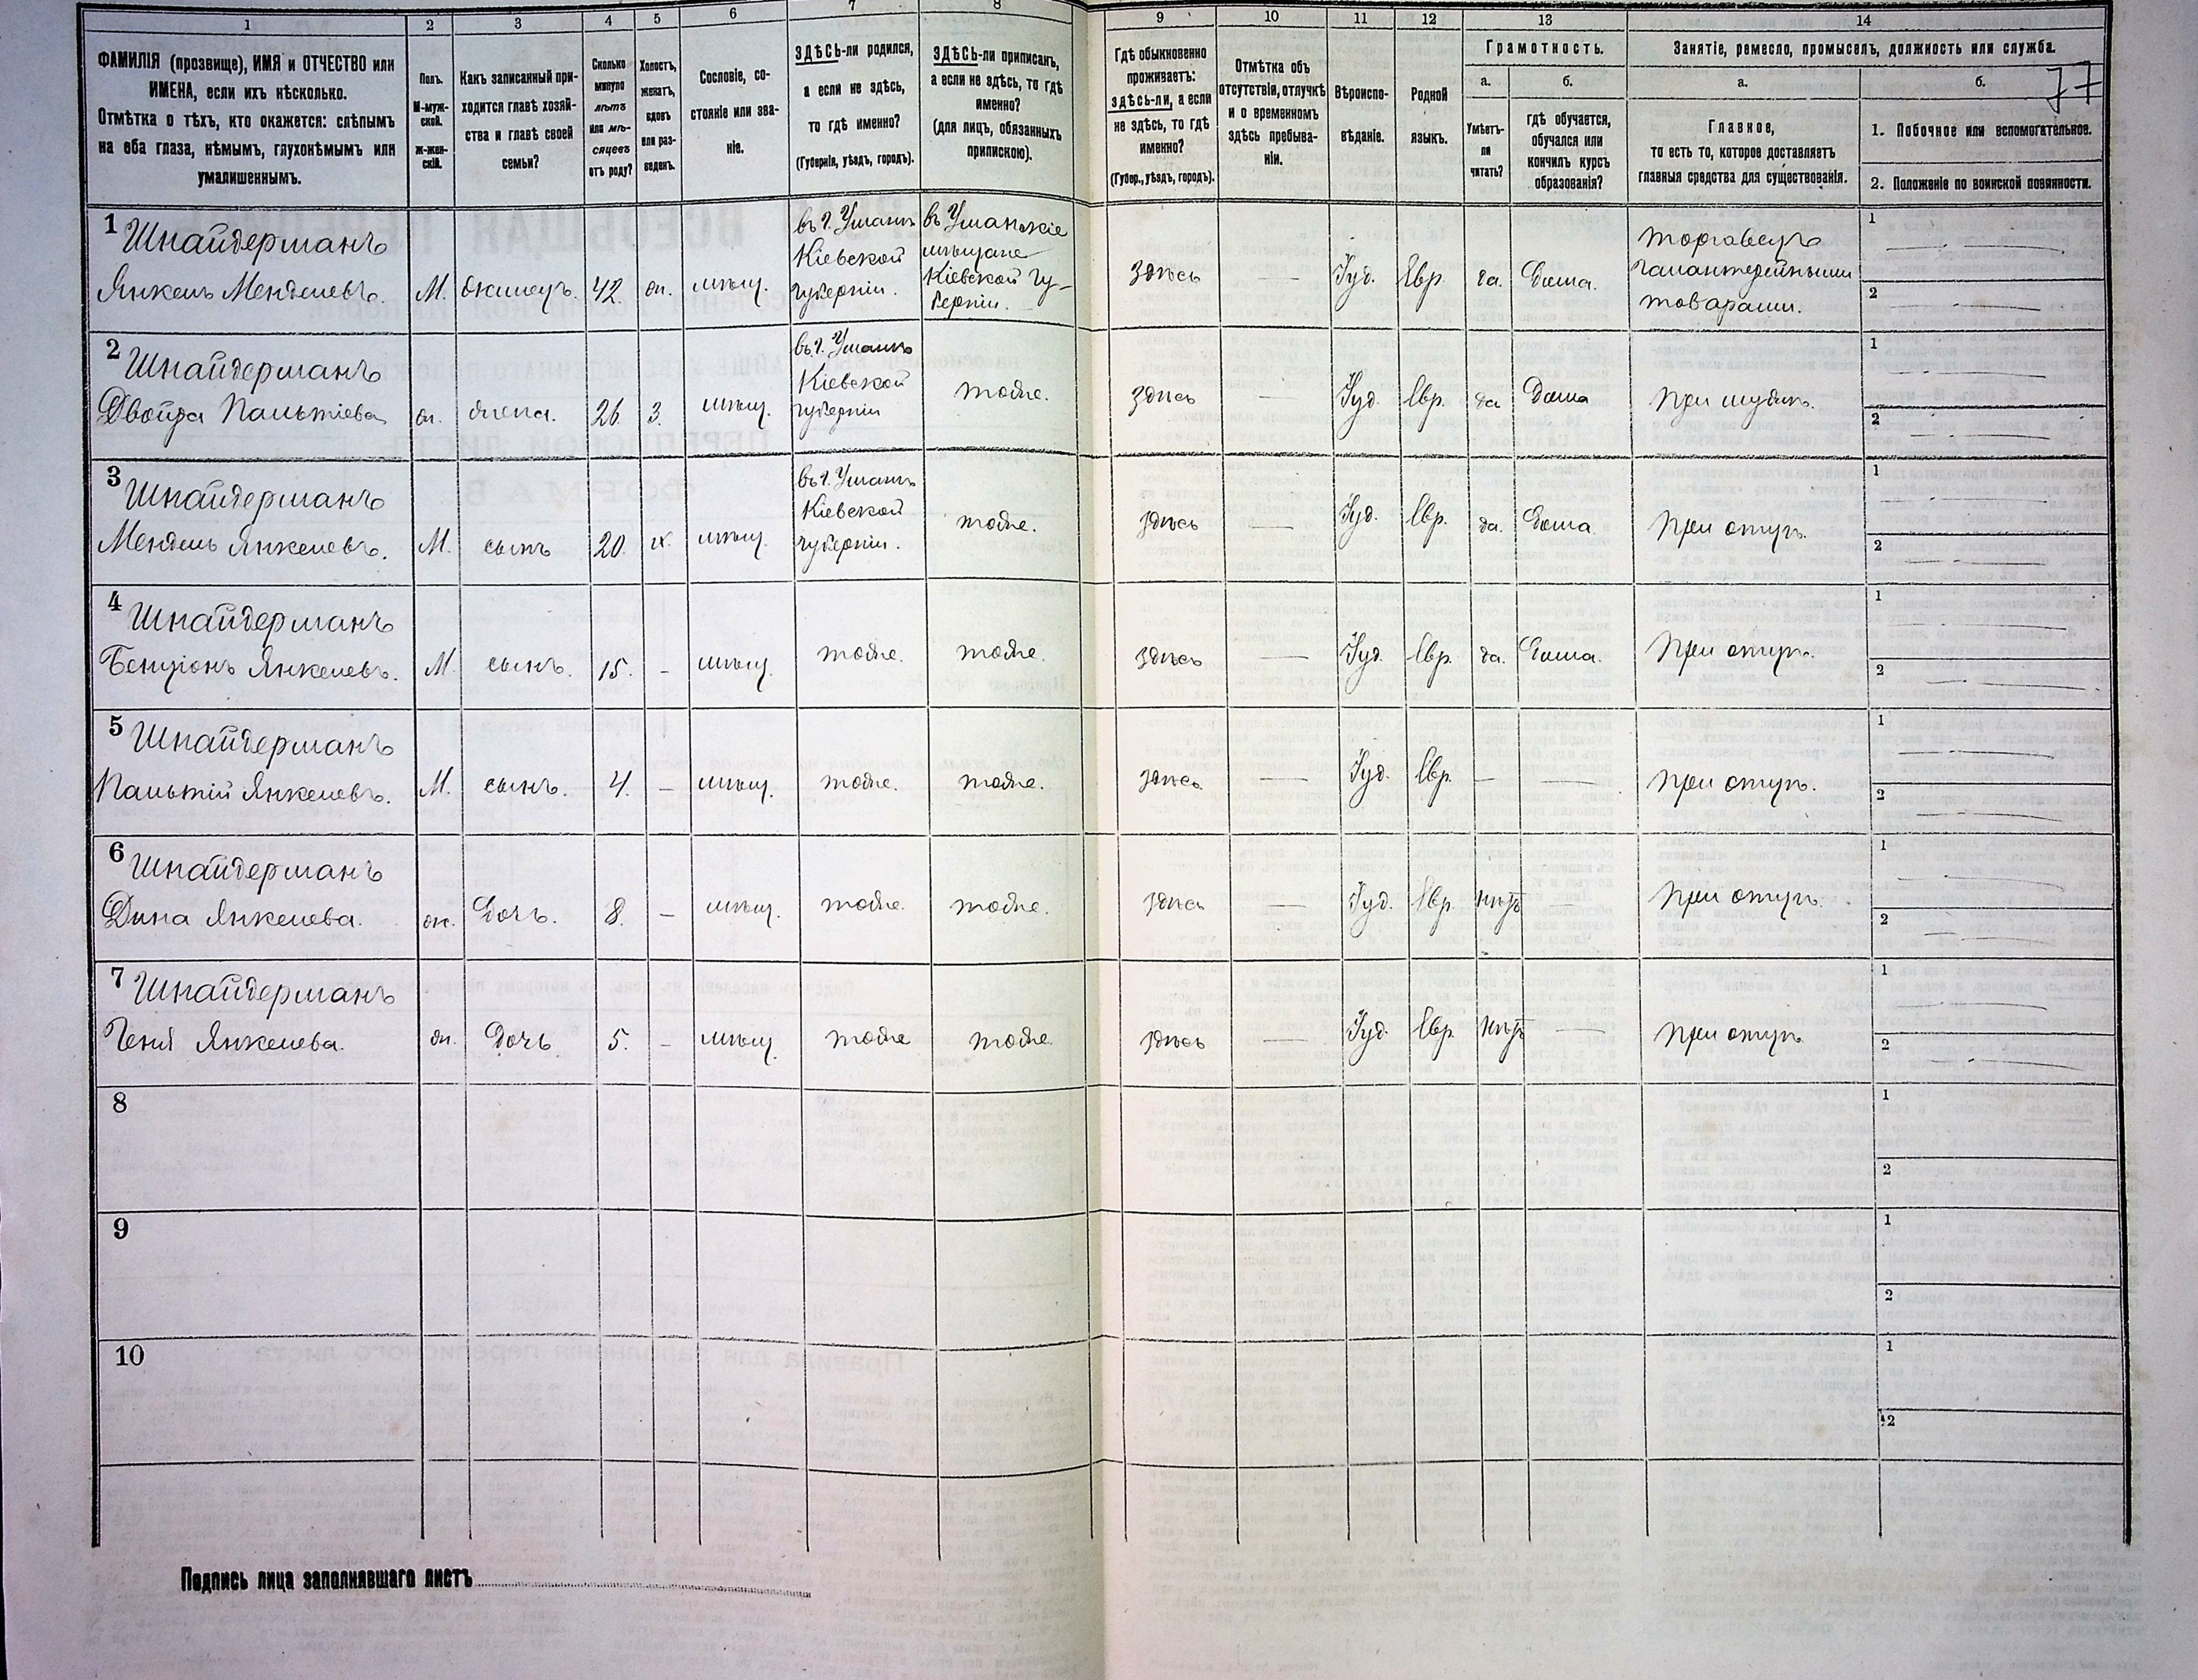 1 2 3 4 5 6 7 8 9 10 11 12 13 14
ФАМИЛІЯ (прозвище), ИМЯ и ОТЧЕСТВО или
ИМЕНА, если ихъ нѣсколько.
Отмѣтка о тѣхъ, кто окажется: слѣпымъ
на оба глаза, нѣмымъ, глухонѣмымъ или
умалишеннымъ.
Полъ.
М-муж-
ской.
ж-жен-
скій.
Какъ записанный при-
ходится главѣ хозяй-
ства и главѣ своей
семьи?
Сколько
минуло
лѣтъ
или мѣ-
сяцевъ
отъ роду?
Холостъ,
женатъ,
вдовъ
или раз-
веденъ.
Сословіе, со-
стояніе или зва-
ніе.
ЗДѢСЬ-ли родился,
а если не здѣсь,
то гдѣ именно?
(Губернія, уѣздъ, городъ).
ЗДѢСЬ-ли приписан,
а если не здѣсь, то гдѣ
именно?
(для лицъ, обязанныхъ
припискою).
Гдѣ обыкновенно
проживаетъ:
здѣсь-ли, а если
не здѣсь, то гдѣ
именно?
(Губер., уѣздъ, городъ).
Отмѣтка объ
отсутствіи, отлучкѣ
и о временномъ
здѣсь пребыва-
ніи.
Вѣроиспо-
вѣданіе.
Родной
языкъ.
Грамотность.
а. б.
Умѣетъ-
ли
читать?
гдѣ обучается,
обучался или
кончилъ курсъ
образованія?
Занятіе, ремесло, промыселъ, должность или служба.
а. б. 77
Главное,
то есть то, которое доставляетъ
главныя средства для существованія.
1. Побочное или вспомогательное.
2. Положеніе по воинской повинности.
1 Шнайдерманъ
Янкель Менделевъ. М. хозяинъ. 42. ж. мѣщ.
въ г. Умань
Кіевской
губерніи.
въ Уманскіе
мѣщане
Кіевской Гу-
берніи.
Здѣсь — Іуд. Евр. да. Дома.
торговецъ
галантерейными
товарами.
1 — 2 —
2 Шнайдерманъ
Двойра Пальтіева ж. жена. 26. З. мѣщ.
въ г. Умань
Кіевской
губерніи
тоже.
Здѣсь — Іуд. Евр. да Дома При мужѣ.
1 — 2 —
3 Шнайдерманъ
Мендель Янкелевъ. М. сынъ 20. х. мѣщ.
въ г. Умань
Кіевской
губерніи.
тоже.
здѣсь — Іуд. Евр. да. Дома При отцѣ.
1 — 2 —
4 Шнайдерманъ
Бенціонъ Янкелевъ. М. сынъ. 15. - мѣщ. тоже. тоже.
здѣсь — Іуд. Евр. да. Дома. При отцѣ.
1 — 2 —
5 Шнайдерманъ
Пальтій Янкелевъ. М. сынъ. 4. - мѣщ. тоже. тоже.
здѣсь — Іуд. Евр. — — При отцѣ.
1 — 2 —
6 Шнайдерманъ
Дина Янкелева. ж. Дочь. 8. - мѣщ. тоже. тоже.
здѣсь — Іуд. Евр. нѣтъ — При отцѣ.
1 — 2 —
7 Шнайдерманъ
Геня Янкелева. ж. Дочь 5. - мѣщ. тоже тоже
здѣсь — Іуд. Евр. нѣтъ — При отцѣ
1 — 2 —
8 1 2
9 1 2
10 1 2
Подпись лица заполнявшаго листъ